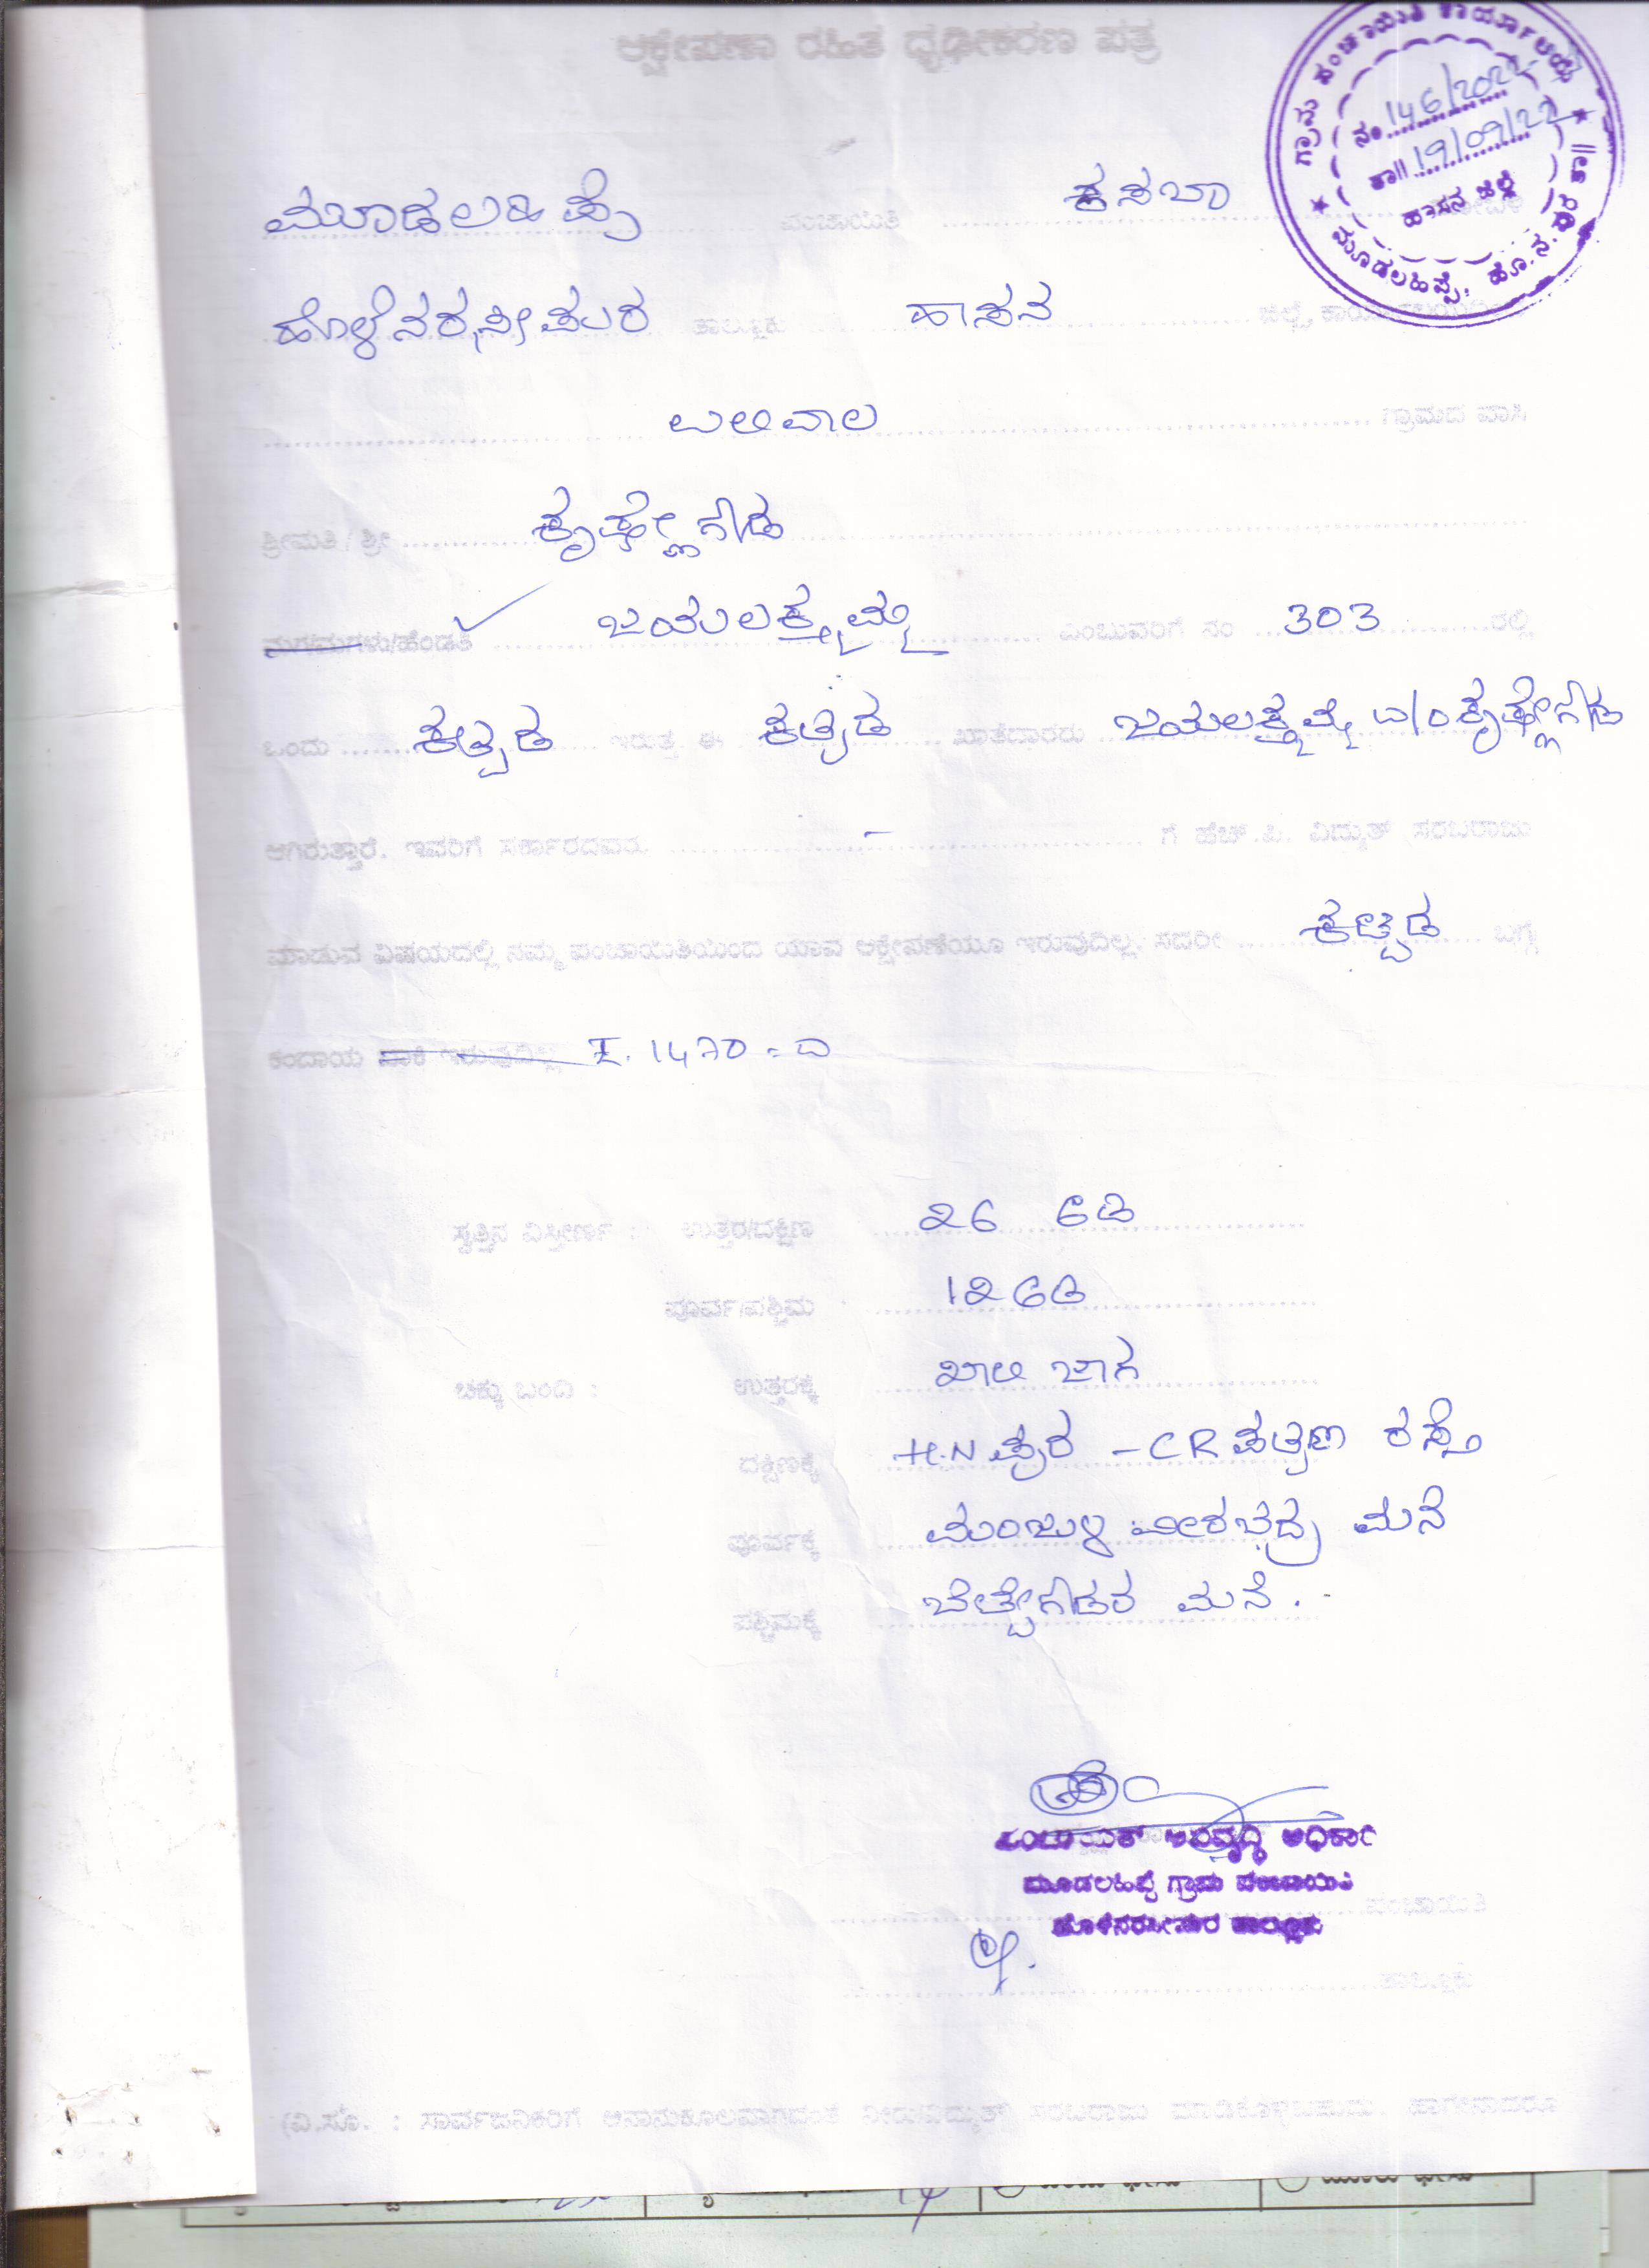 ಆಕ್ಷೇಪಣಾ ರಹಿತ ದೃಢೀಕರಣ ಪತ್ರ
ಗ್ರಾಮ ಪಂಚಾಯಿತಿ ಕಾರ್ಯಾಲಯ
ನಂ 146/2022
ತಾ|| 19/09/22
ಹಾಸನ ಜಿಲ್ಲೆ
ಮೂಡಲಹಿಪ್ಪೆ, ಹೊ.ನ.ಪುರ ತಾ||
ಮೂಡಲಹಿಪ್ಪೆ ಪಂಚಾಯಿತಿ ಕಸಬಾ
ಹೊಳೆನರಸೀಪುರ ತಾಲ್ಲೂಕು ಹಾಸನ ಜಿಲ್ಲೆ,
ಗ್ರಾಮದ ವಾಸಿ
ಶ್ರೀಮತಿ / ಶ್ರೀ ಕೃಷ್ಣೇಗೌಡ
ಮಗ/ಮಗಳು/ಹೆಂಡತಿ ಜಯಲಕ್ಷ್ಮಮ್ಮ ಎಂಬುವರಿಗೆ ನಂ 303 ರಲ್ಲಿ
ಒಂದು ಕಟ್ಟಡ ಇರುತ್ತೆ ಈ ಕಟ್ಟಡ ಖಾತೆದಾರರು ಜಯಲಕ್ಷ್ಮಮ್ಮ W/o ಕೃಷ್ಣೇಗೌಡ
ಆಗಿರುತ್ತಾರೆ. ಇವರಿಗೆ ಸರ್ಕಾರದವರು – ಗೆ ಹೆಚ್.ಪಿ. ವಿದ್ಯುತ್ ಸರಬರಾಜು
ಮಾಡುವ ವಿಷಯದಲ್ಲಿ ನಮ್ಮ ಪಂಚಾಯಿತಿಯಿಂದ ಯಾವ ಆಕ್ಷೇಪಣೆಯೂ ಇರುವುದಿಲ್ಲ. ಸದರೀ ಕಟ್ಟಡ ಬಗ್ಗೆ
ಕಂದಾಯ ಬಾಕಿ ಇರುವುದಿಲ್ಲ 1470
ಸ್ವತ್ತಿನ ವಿಸ್ತೀರ್ಣ : ಉತ್ತರ/ದಕ್ಷಿಣ 26 ಅಡಿ
ಪೂರ್ವ/ಪಶ್ಚಿಮ 12 ಅಡಿ
ಚಕ್ಕು ಬಂದಿ : ಉತ್ತರಕ್ಕೆ ಖಾಲಿ ಜಾಗ
ದಕ್ಷಿಣಕ್ಕೆ H.N ಪುರ – CR ಪಟ್ಟಣ ರಸ್ತೆ
ಪೂರ್ವಕ್ಕೆ ಮಂಜುಳ ವೀರಭದ್ರ ಮನೆ
ಪಶ್ಚಿಮಕ್ಕೆ ಬೆಟ್ಟೇಗೌಡರ ಮನೆ.
ಪಂಚಾಯತ್ ಅಭಿವೃದ್ಧಿ ಅಧಿಕಾರಿ
ಮೂಡಲಹಿಪ್ಪೆ ಗ್ರಾಮ ಪಂಚಾಯಿತಿ
ಪಂಚಾಯಿತಿ
ಹೊಳೆನರಸೀಪುರ ತಾಲ್ಲೂಕು
ತಾಲ್ಲೂಕು
(ವಿ.ಸೂ. : ಸಾರ್ವಜನಿಕರಿಗೆ ಅನಾನುಕೂಲವಾಗದಂತೆ ನೀರು/ವಿದ್ಯುತ್ ಸರಬರಾಜು ಮಾಡಿಕೊಳ್ಳಬಹುದು. ಹಾಗೇನಾದರೂ